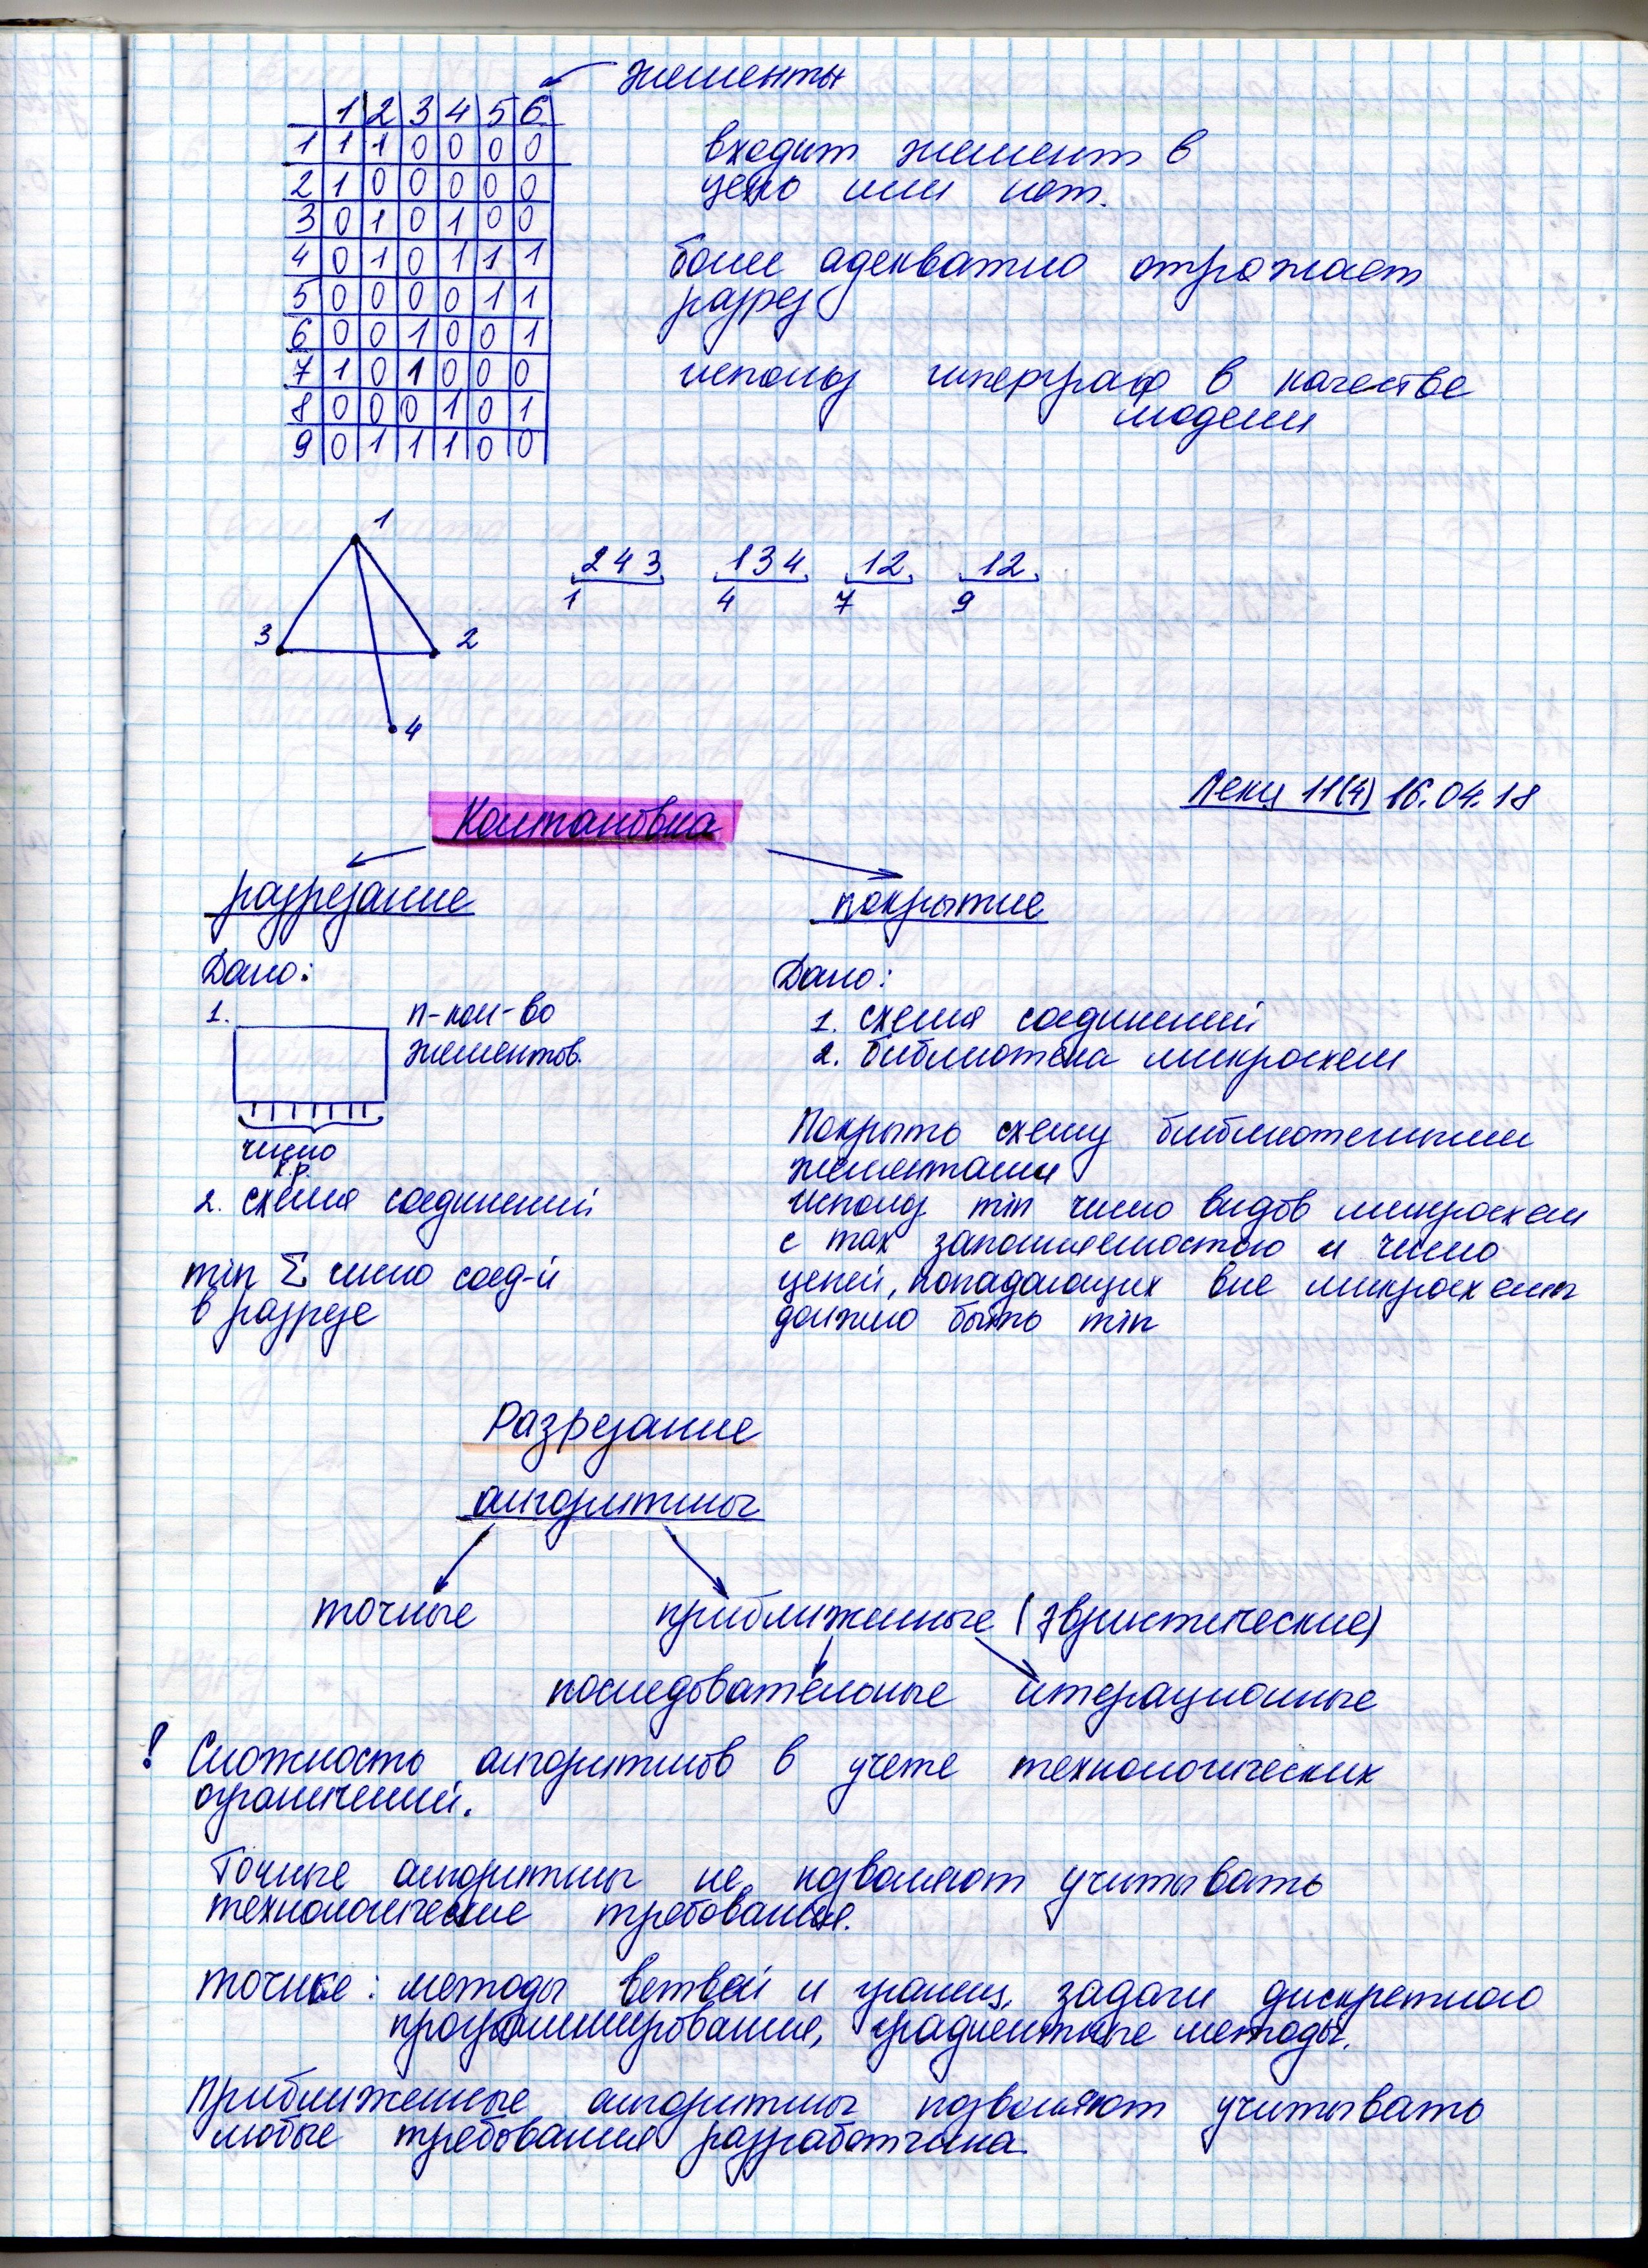 элементы
1 2 3 4 5 6
1 1 1 0 0 0 0
2 1 0 0 0 0 0
3 0 1 0 1 0 0
4 0 1 0 1 1 1
5 0 0 0 0 1 1
6 0 0 1 0 0 1
7 1 0 1 0 0 0
8 0 0 0 1 0 1
9 0 1 1 1 0 0
входит элемент в
цепь или нет.
более адекватно отражает
разрез
использ гиперграф в качестве
модели
1
3 2
4
243 134 12 12
1 4 7 9
Лекц 11(4) 16.04.18
Компановка
разрезание покрытие
Дано:
1. n-кол-во
элементов.
число
к.р.
2. схема соединений
min Σ число соед-й
в разрезе
Дано:
1. схема соединений
2. библиотека микросхем
Покрыть схему библиотечными
элементами
использ. min число видов микросхем
с max заполняемостью и число
цепей, попадающих вне микросхемы
должно быть min
Разрезание
алгоритмы
точные приближенные (эвристические)
последовательные итерационные
! Сложность алгоритмов в учете технологических
ограничений.
Точные алгоритмы не позволяют учитывать
технологические требования.
точные: методы ветвей и границ, задачи дискретного
программирования, градиентные методы.
Приближенные алгоритмы позволяют учитывать
любые требования разработчика